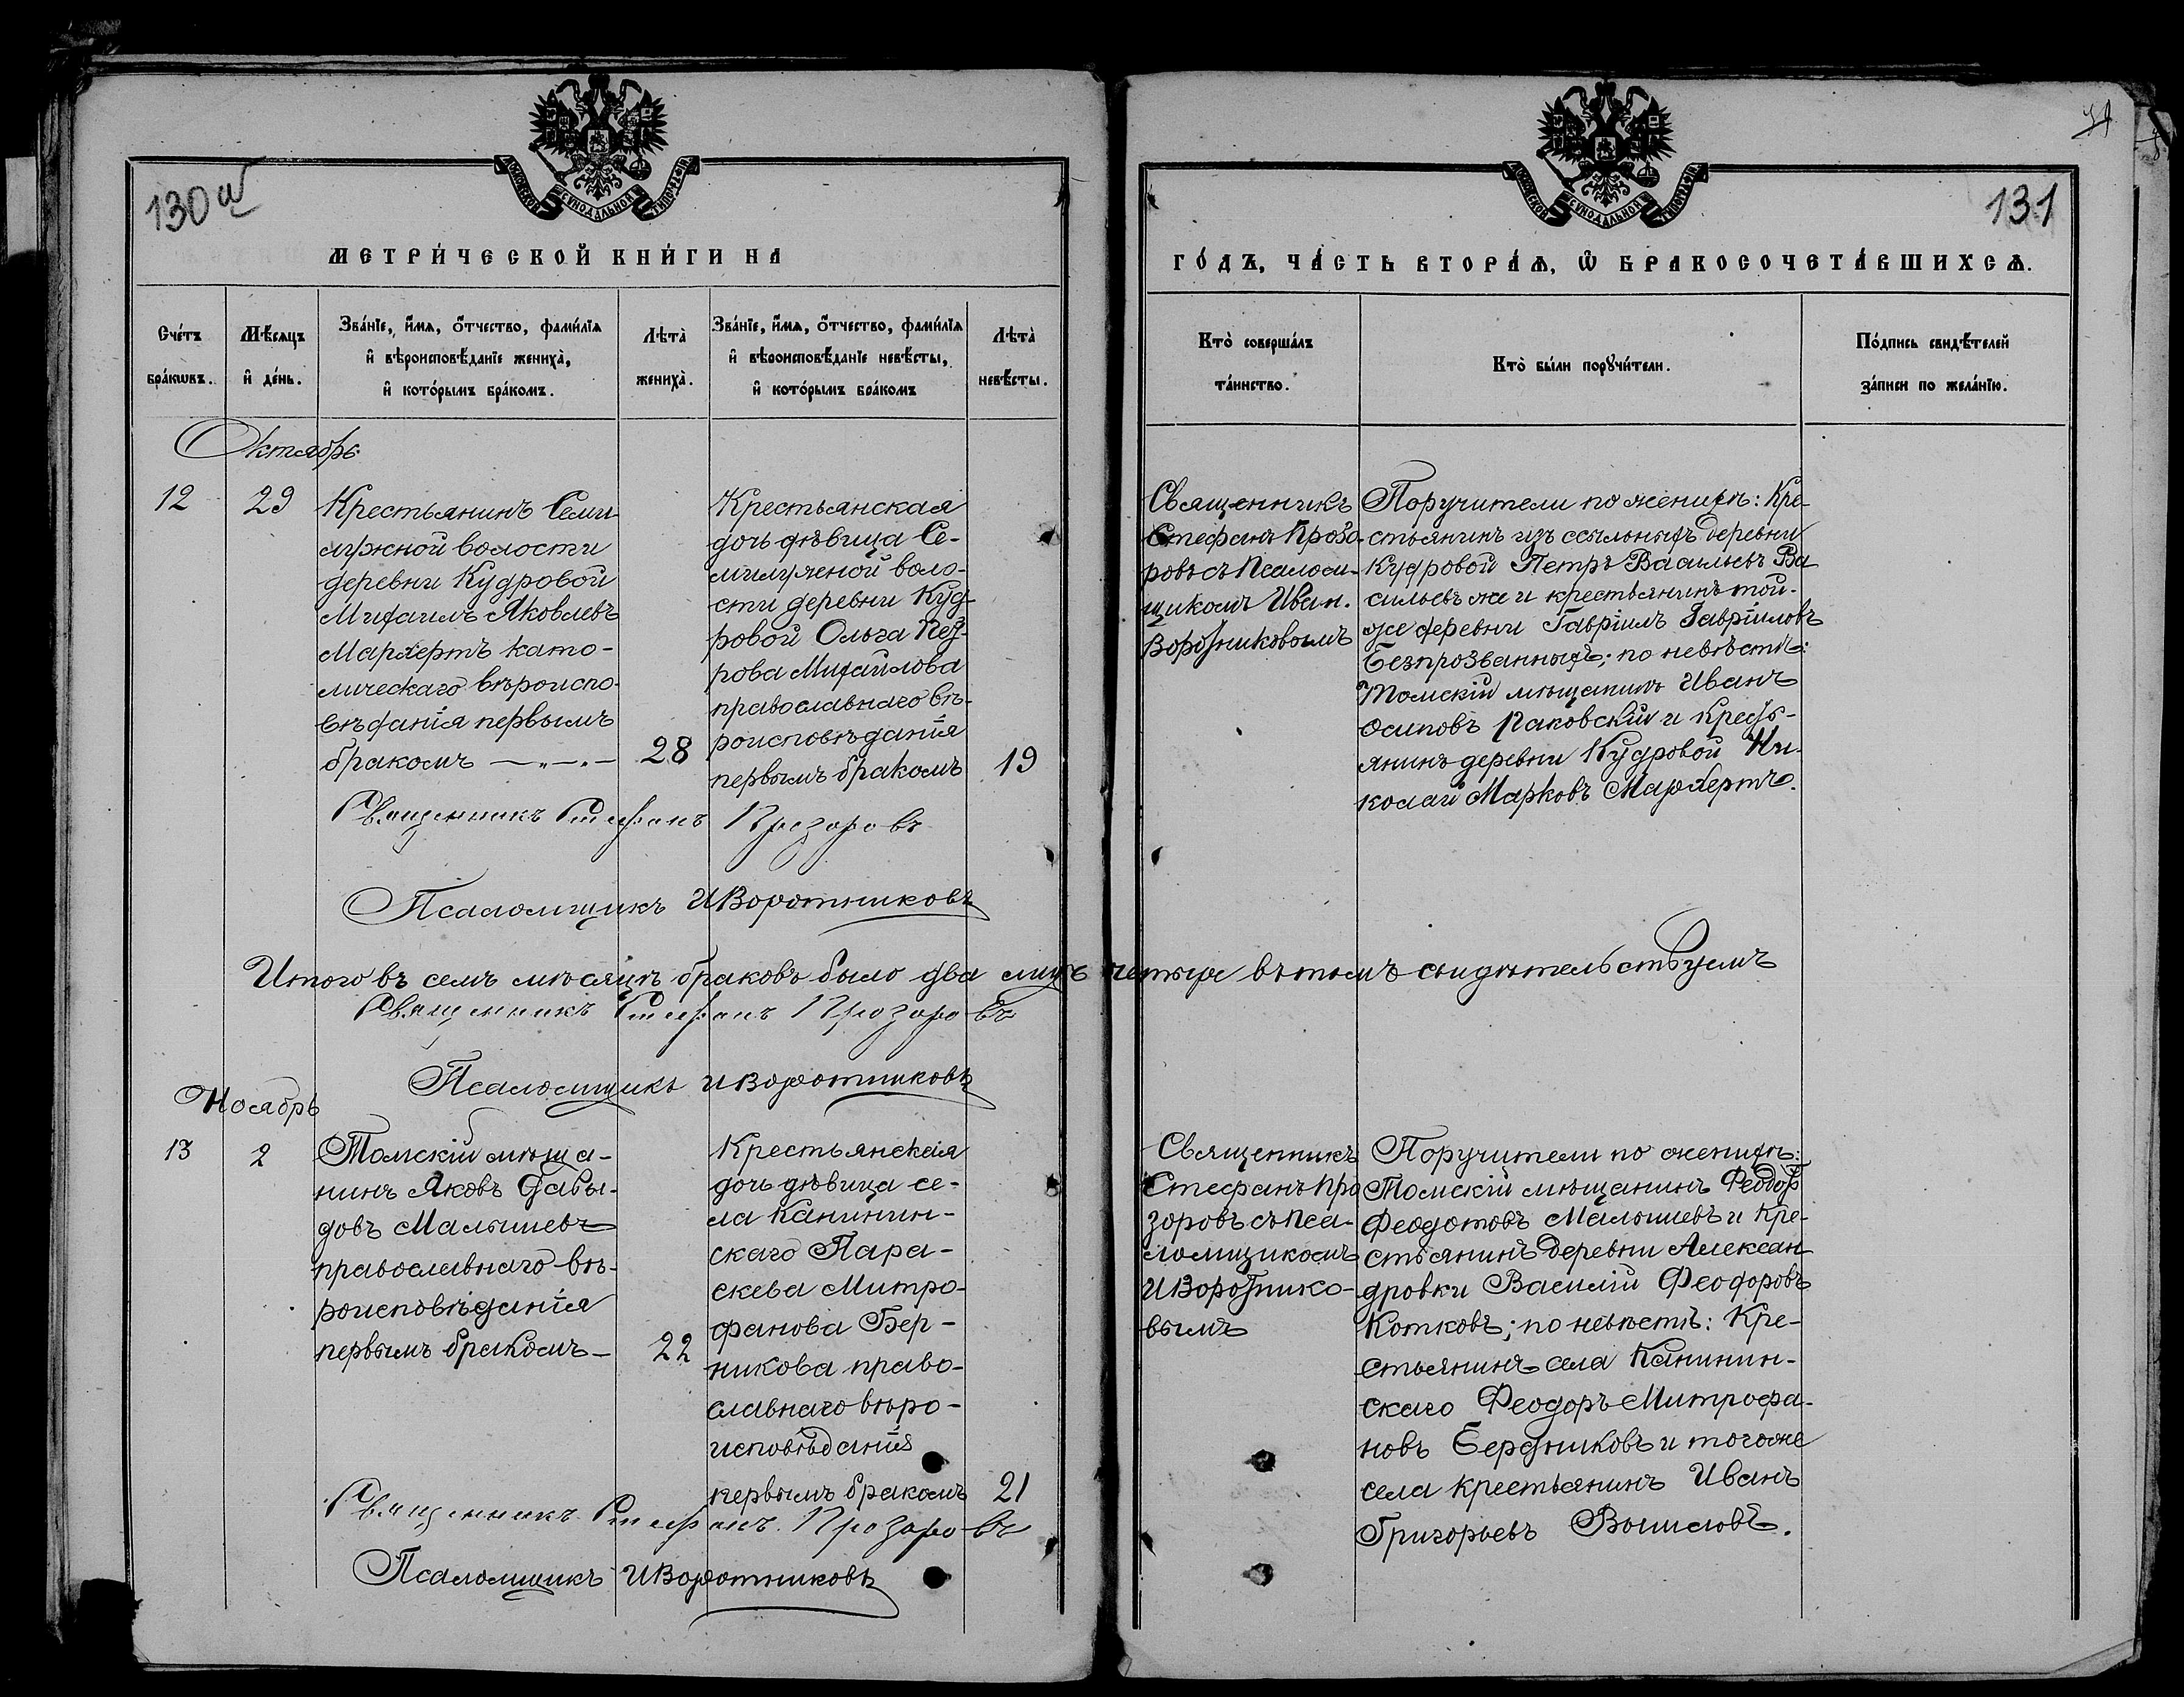 130 об
МЕТРИ́ЧЕСКОЙ КНИ́ГИ НА
Сче́тъ
бра́кѡвъ.
Мѣ́сяцъ
и҆ де́нь.
Зва́нїе, и҆́мѧ, ѻ҆́тчество, фами́лїѧ
и҆ вѣроисповѣ́данїе жениха̀,
и҆ кото́рымъ бра́комъ.
Лѣта̀
жениха̀.
Зва́нїе, и҆́мѧ, ѻ҆́тчество, фами́лїѧ
и҆ вѣроисповѣ́данїе невѣ́сты,
и҆ кото́рымъ бра́комъ
Лѣта̀
невѣ́сты.
Октябрь
12
29
Крестьянинъ Семи-
лужной волости
деревни Кудровой
Михаилъ Яковлевъ
Мархертъ като-
лическаго вѣроиспо-
вѣданія первымъ
бракомъ
28
Крестьянская
дочь дѣвица Се-
милужной воло-
сти деревни Куд-
ровой Ольга Пет-
рова Михайлова
православнаго вѣ-
роисповѣданія
первымъ бракомъ
19
Священникъ Стефанъ Прозоровъ
Псаломщикъ ИВоротниковъ
Итого въ семъ мѣсяцѣ браковъ было два лицъ четыре въ томъ свидѣтельствуемъ
Священникъ Стефанъ Прозоровъ
Псаломщикъ ИВоротниковъ
Ноябрь
13
2
Томскій мѣща-
нинъ Яковъ Давы-
довъ Малышевъ
православнаго вѣ-
роисповѣданія
первымъ бракомъ
22
Крестьянская
дочь дѣвица се-
ла Канинин-
скаго Пара-
скева Митро-
фанова Бер-
никова право-
славнаго вѣро-
исповѣданія
первымъ бракомъ
21
Священникъ Стефанъ Прозоровъ
Псаломщикъ ИВоротниковъ
131
ГО́ДЪ, ЧА́СТЬ ВТОРА́Ѧ, Ѽ БРАКОСОЧЕТА́ВШИХСѦ.
Кто̀ соверша́лъ
та́инство.
Кто̀ бы́ли порꙋчи́тели.
По́дпись свидѣ́телей
за́писи по жела́нїю.
Священникъ
Стефанъ Прозо-
ровъ съ псаломщ-
щикомъ Иван.
Воротниковымъ
Поручители по женихѣ: Кре-
стьянинъ изъ ссыльныхъ деревни
Кудровой Петръ Васильевъ Ва
сильевъ же и крестьянинъ той-
же деревни Гавріилъ Гавріиловъ
Безпрозванныхъ; по невѣстѣ:
Томскій мѣщанинъ Иванъ
Осиповъ Раковскій и кресть-
янинъ деревни Кудровой Ни-
колай Марковъ Мархертъ.
Священникъ
Стефанъ Про
зоровъ съ пса-
ломщикомъ
ИВоротнико-
вымъ
Поручители по женихѣ:
Томскій мѣщанинъ Феодоръ
Феодотовъ Малышевъ и кре-
стьянинъ деревни Алексан-
дровки Василій Феодоровъ
Котковъ; по невѣстѣ: Кре-
стьянинъ села Канинин-
скаго Феодоръ Митрофа-
новъ Бердниковъ и тогоже
села крестьянинъ Иванъ
Григорьевъ